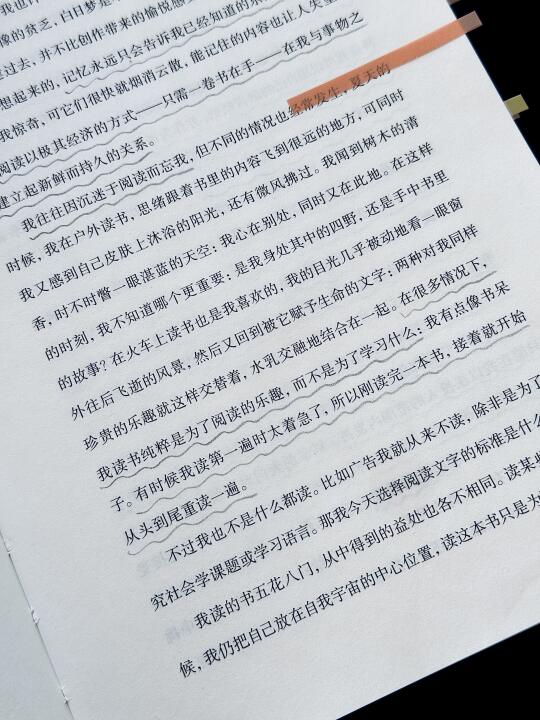 像的贫乏，白日梦是
过去，并不比创作带来的愉悦感
想起来的，记忆永远只会告诉我已经知道的东
我惊奇，可它们很快就烟消云散，能记住的内容也让人失望
阅读以极其经济的方式——只需一卷书在手——在我与事物之
建立起新鲜而持久的关系。
我往往因沉迷于阅读而忘我，但不同的情况也经常发生，夏天的
时候，我在户外读书，思绪跟着书里的内容飞到很远的地方，可同时
我又感到自己皮肤上沐浴的阳光，还有微风拂过。我闻到树木的清
香，时不时瞥一眼湛蓝的天空：我心在别处，同时又在此地。在这样
的时刻，我不知道哪个更重要：是我身处其中的四野，还是手中书里
的故事？在火车上读书也是我喜欢的，我的目光几乎被动地看一眼窗
外往后飞逝的风景，然后又回到被它赋予生命的文字：两种对我同样
珍贵的乐趣就这样交替着，水乳交融地结合在一起。在很多情况下，
我读书纯粹是为了阅读的乐趣，而不是为了学习什么：我有点像书呆
子。有时候我读第一遍时太着急了，所以刚读完一本书，接着就开始
从头到尾重读一遍。
不过我也不是什么都读。比如广告我就从来不读，除非是为了
究社会学课题或学习语言。那我今天选择阅读文字的标准是什么
我读的书五花八门，从中得到的益处也各不相同。读某些
候，我仍把自己放在自我宇宙的中心位置，读这本书只是为